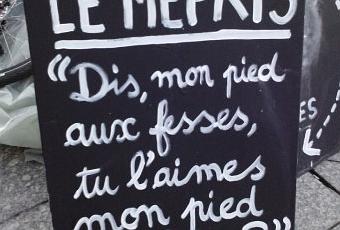 LE MÉPRIS
"Dis, mon pied
aux fesses,
tu l'aimes
mon pied
?"
ES